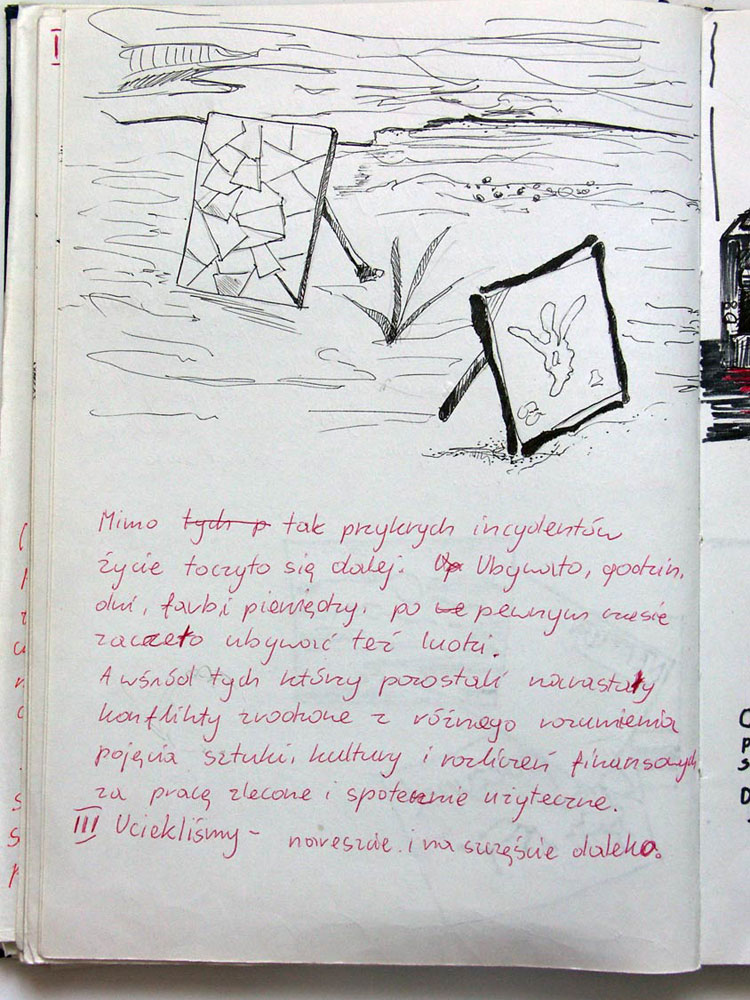 Mimo tych p tak przykrych incydentów
życie toczyło się dalej. Up Ubywało, godzin,
dni, farb, i pieniędzy, po pewnym czasie
zaczeło ubywać też ludzi.
A wśród tych którzy pozostali narastały
konflikty zrodzone z różnego rozumienia
pojęcia sztuki, kultury i rozliczeń finansowych
za pracę zlecone i społecznie użyteczne.
III Uciekliśmy - nareszcie i na szczęście daleko.